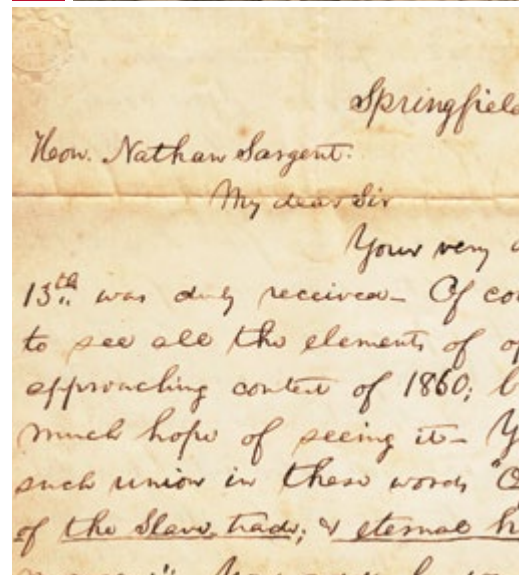 Springfield
Hon. Nathan Sargent.
My dear Sir
Your very
13th was duly received— Of co
to see all the elements of op
approaching contest of 1860;
much hope of seeing it— Y
such union in these words "O
of the Slave trade; & eternal h